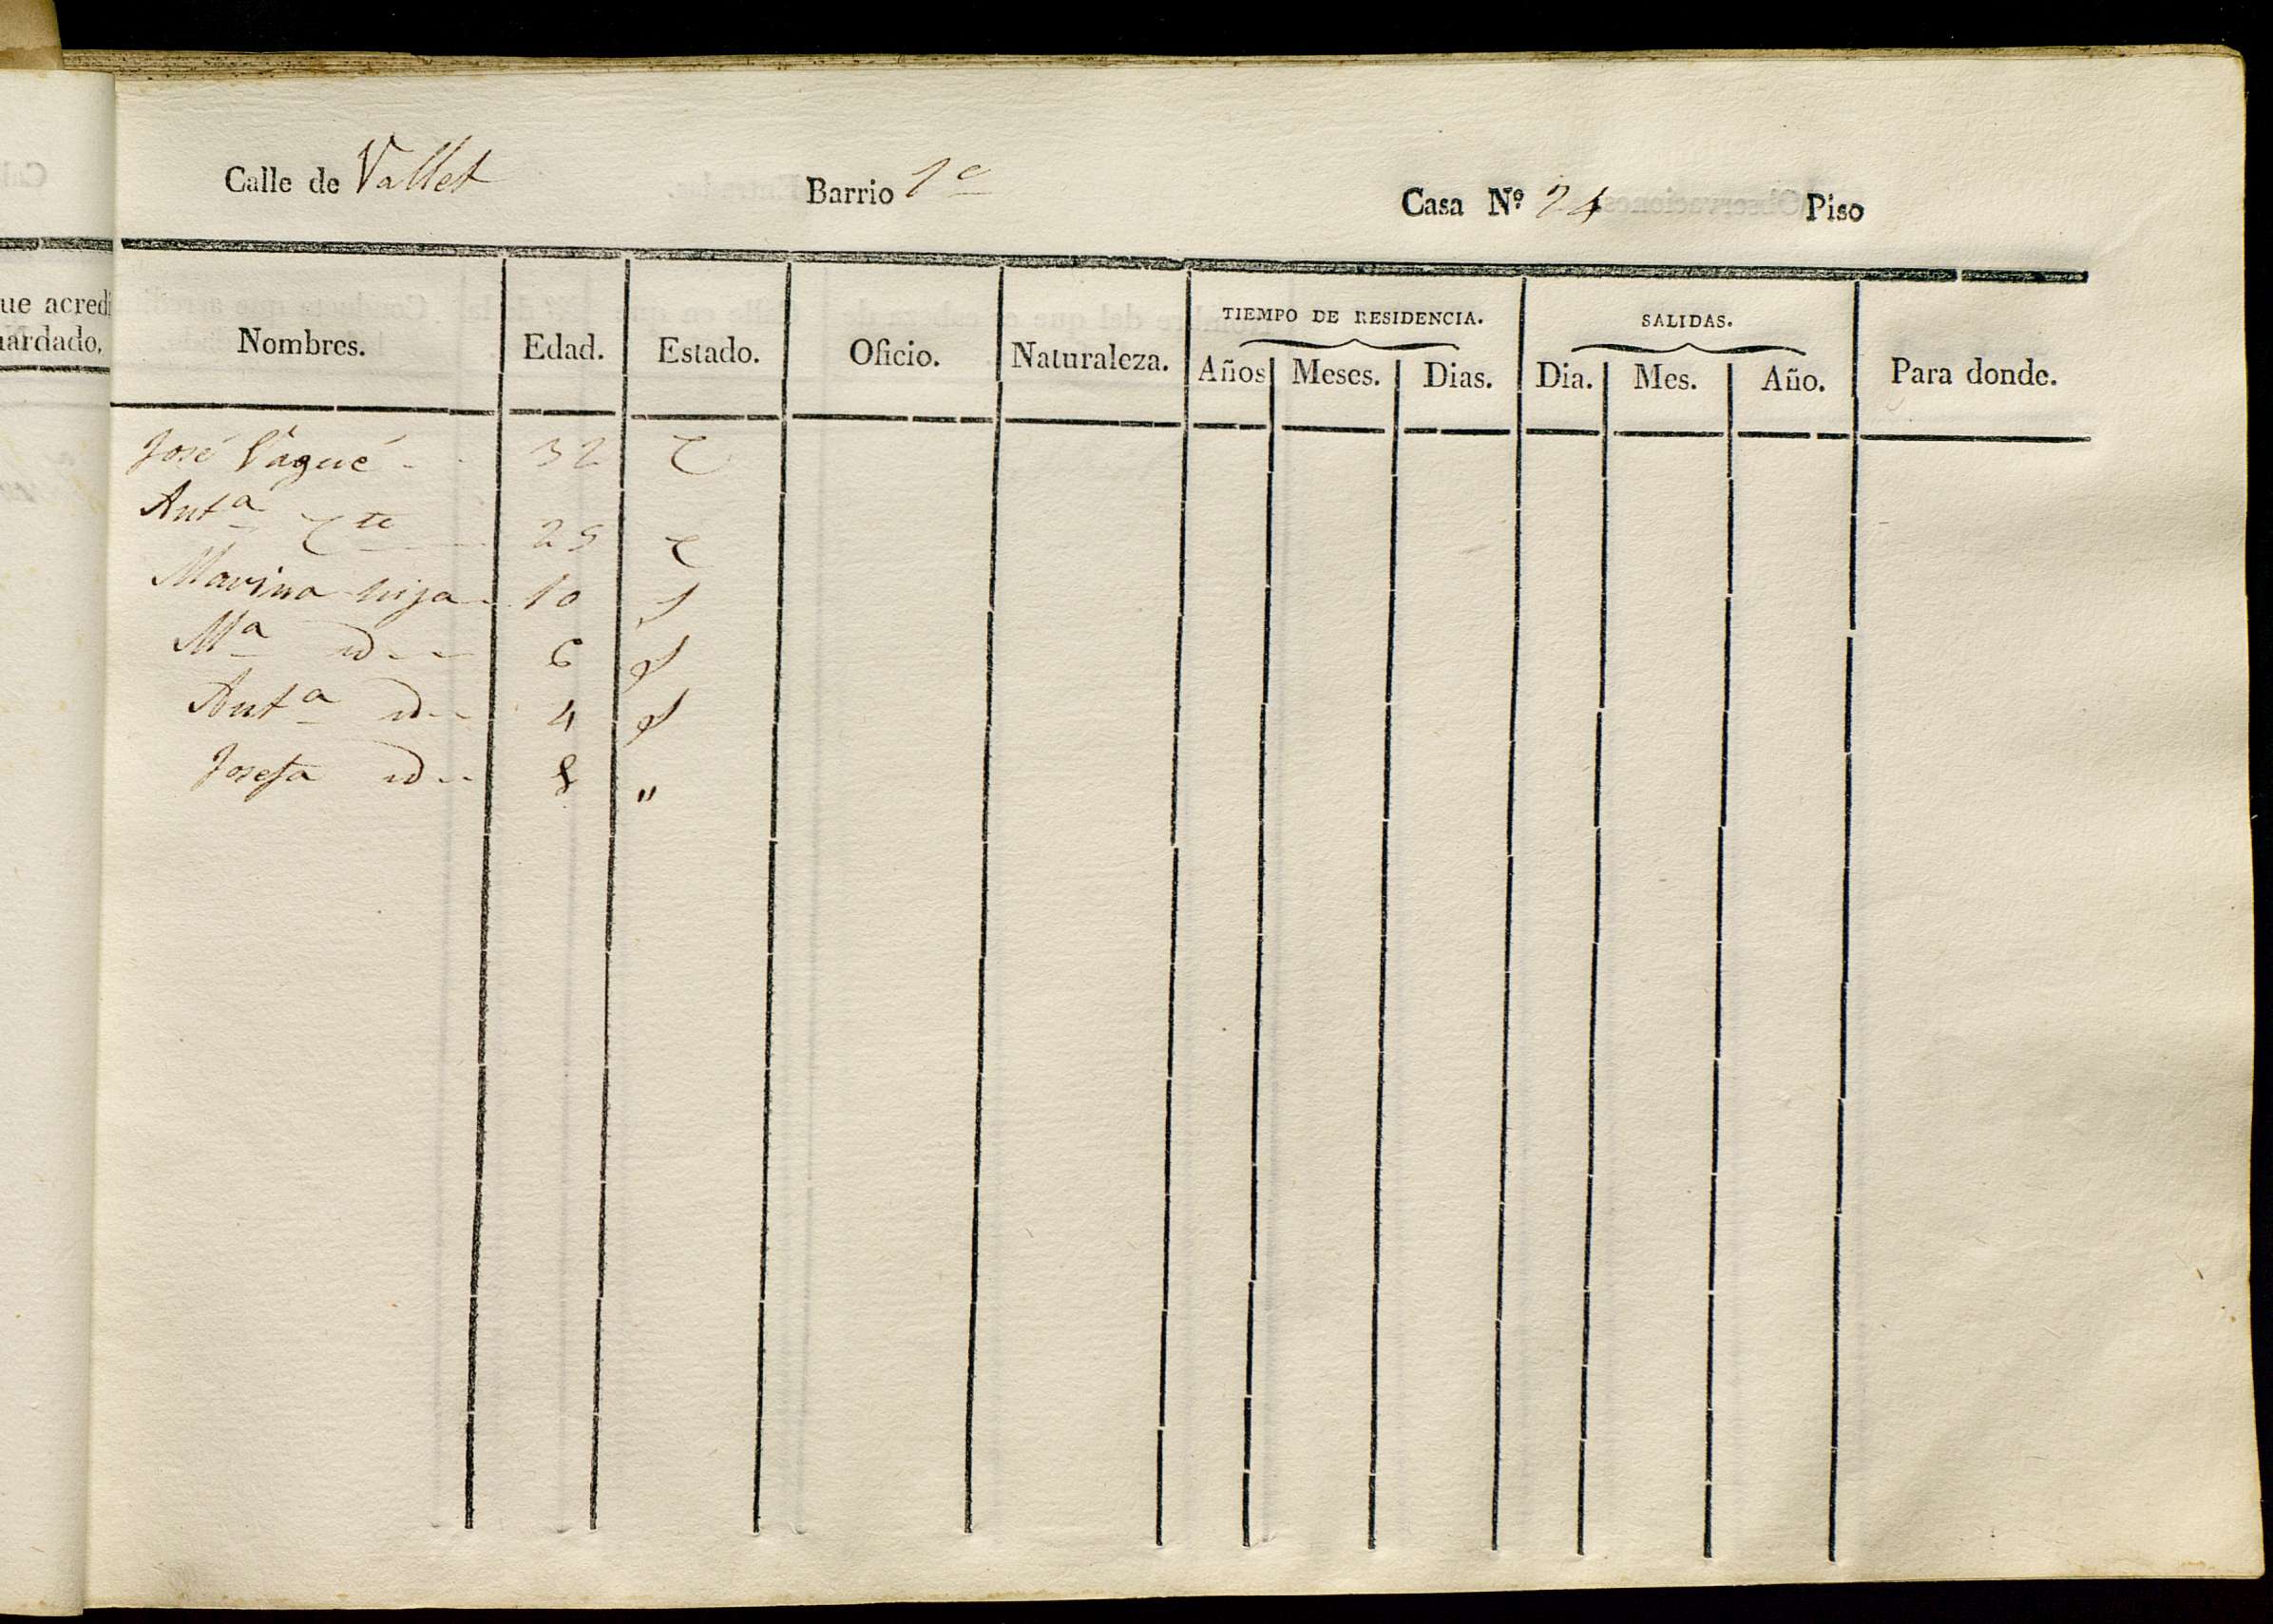 ue acredi
ardado,
Calle de Vallet Barrio 1º Casa Nº 24 Piso
Nombres. Edad. Estado. Oficio. Naturaleza. TIEMPO DE RESIDENCIA. Años Meses. Dias. SALIDAS. Dia. Mes. Año. Para donde.
José Vagué - - 32 C
Antª C te 25 C
Marina hija - 10 S
Mª id - - 6 S
Antª id - - 4 S
Josefa id - - 8 "